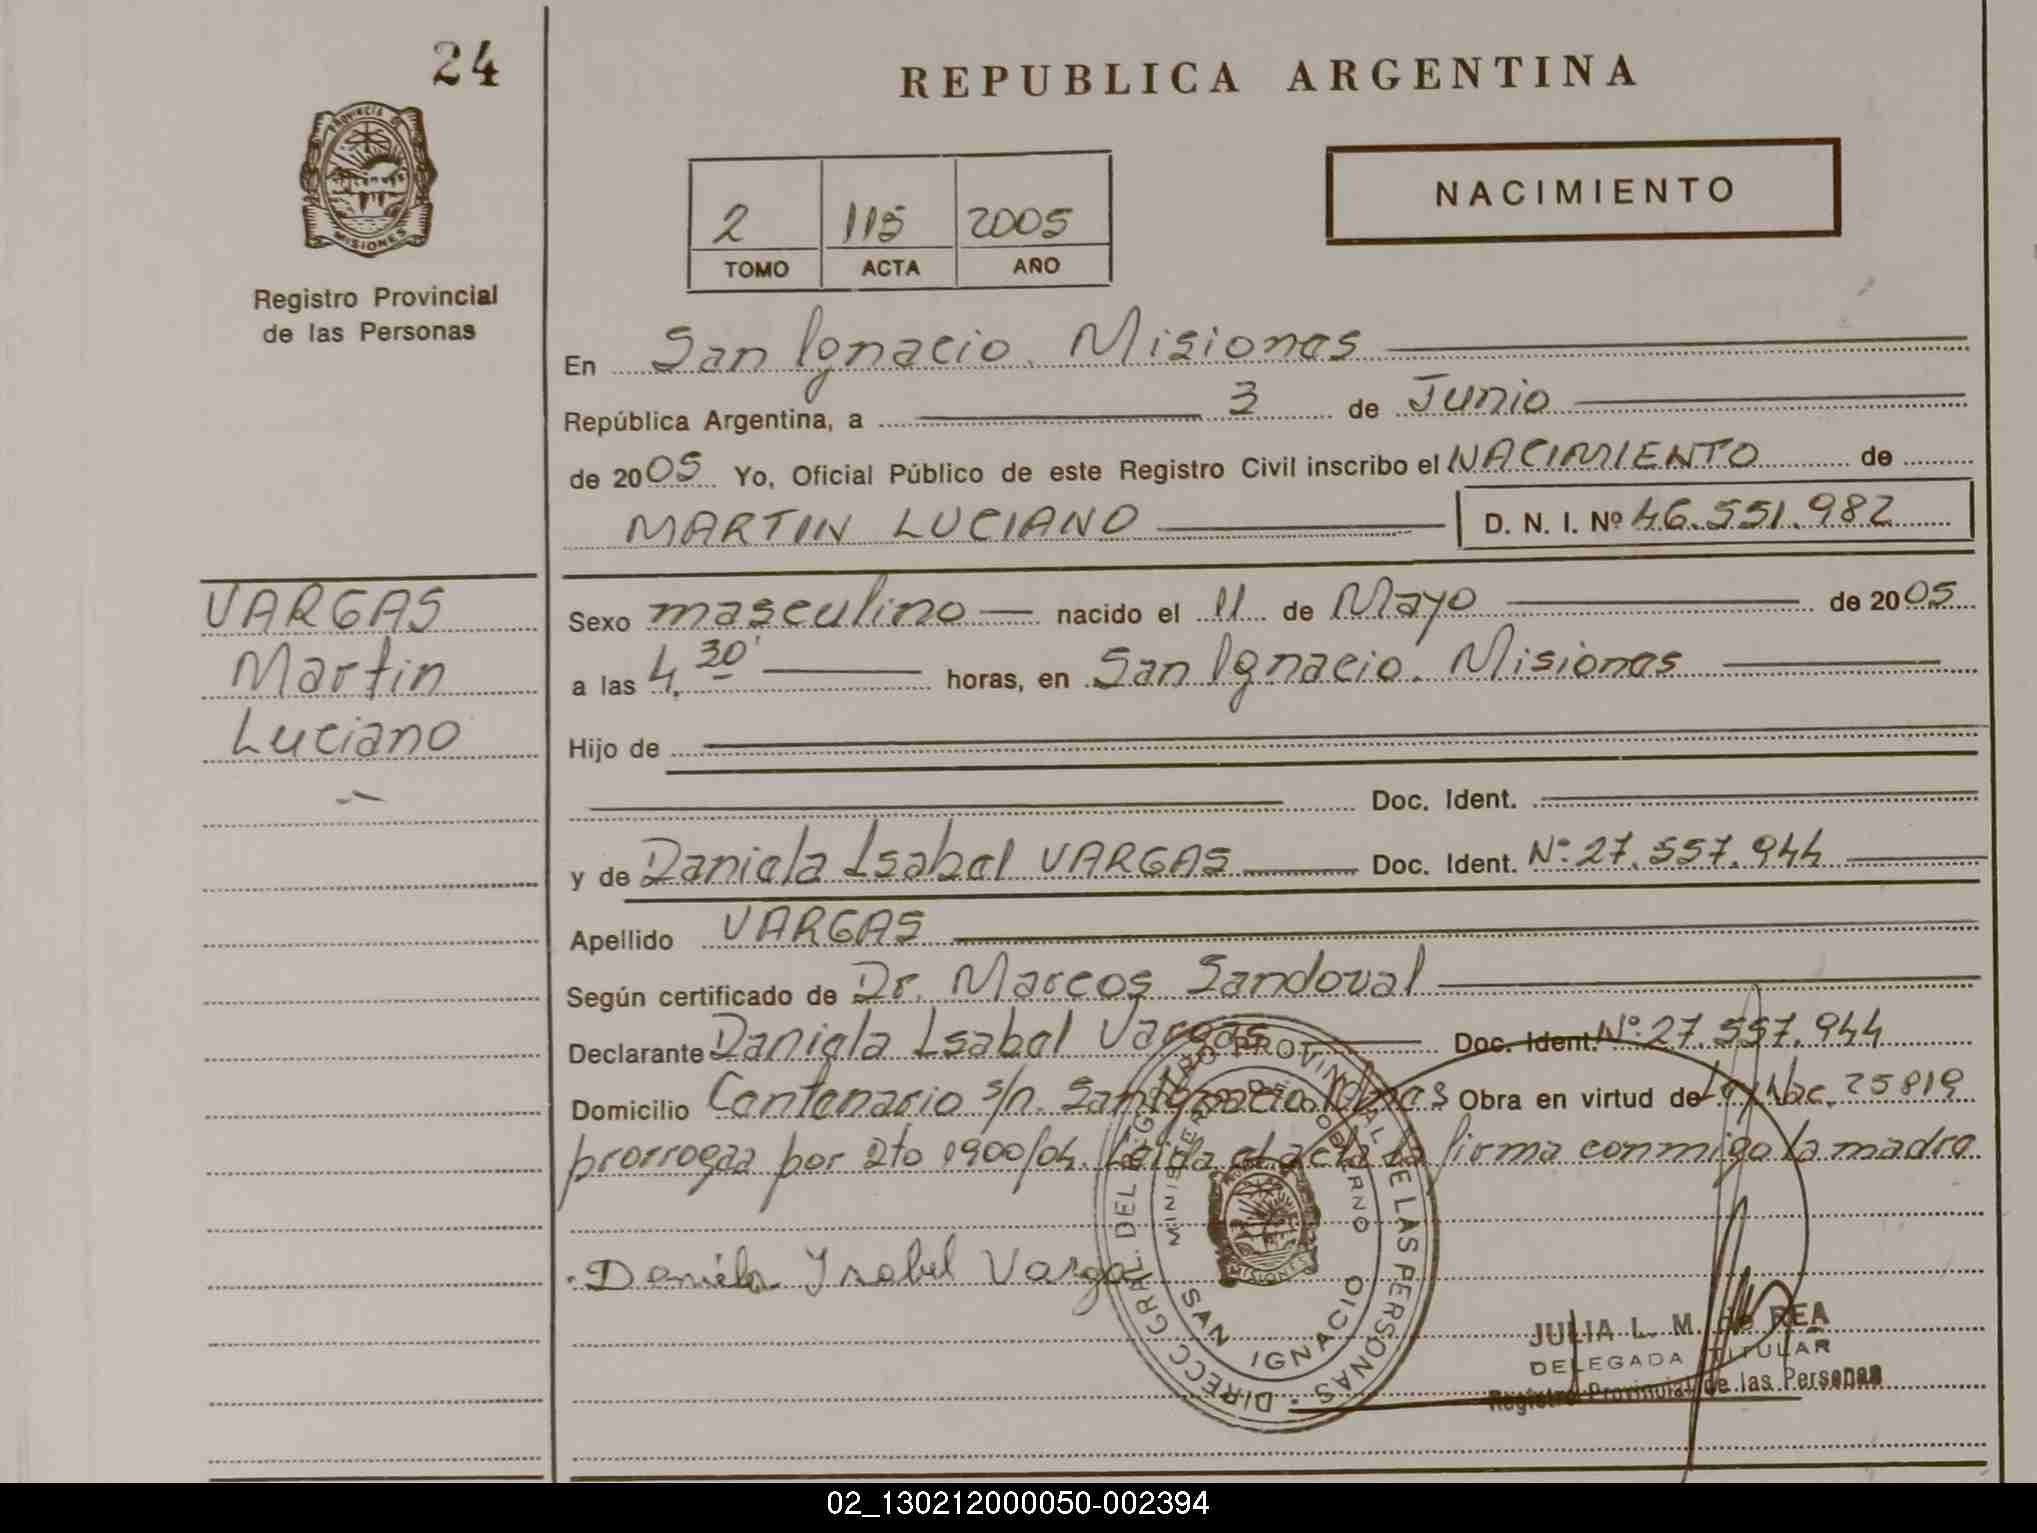 24
REPUBLICA ARGENTINA
PROVINCIA DE
MISIONES
NACIMIENTO
2 115 2005
TOMO ACTA AÑO
Registro Provincial
de las Personas
En San Ignacio. Misiones
República Argentina, a 3 de Junio
de 2005 Yo, Oficial Público de este Registro Civil inscribo el NACIMIENTO de
MARTIN LUCIANO D. N. I. Nº 46.551.982
VARGAS
Martin
Luciano
Sexo masculino nacido el 11 de Mayo de 2005
a las 4.30' horas, en San Ignacio. Misiones
Hijo de
Doc. Ident.
y de Daniela Isabel VARGAS Doc. Ident. Nº: 27.557.944
Apellido VARGAS
Según certificado de Dr. Marcos Sandoval
Declarante Daniela Isabel Vargas Doc. Ident. Nº: 27.557.944
Domicilio Centenario s/n. San Ignacio Mnes Obra en virtud de Ley Nac. 25819
prorrogaa por Dto 1900/04. Leida el acta la firma conmigo la madre
Daniela Isabel Vargas
DIRECC. GRAL. DEL REGISTRO PROVINCIAL DE LAS PERSONAS
MINISTERIO DE GOBIERNO
MISIONES
SAN IGNACIO
JULIA L. M. de REA
DELEGADA TITULAR
Registro Provincial de las Personas
02_130212000050-002394